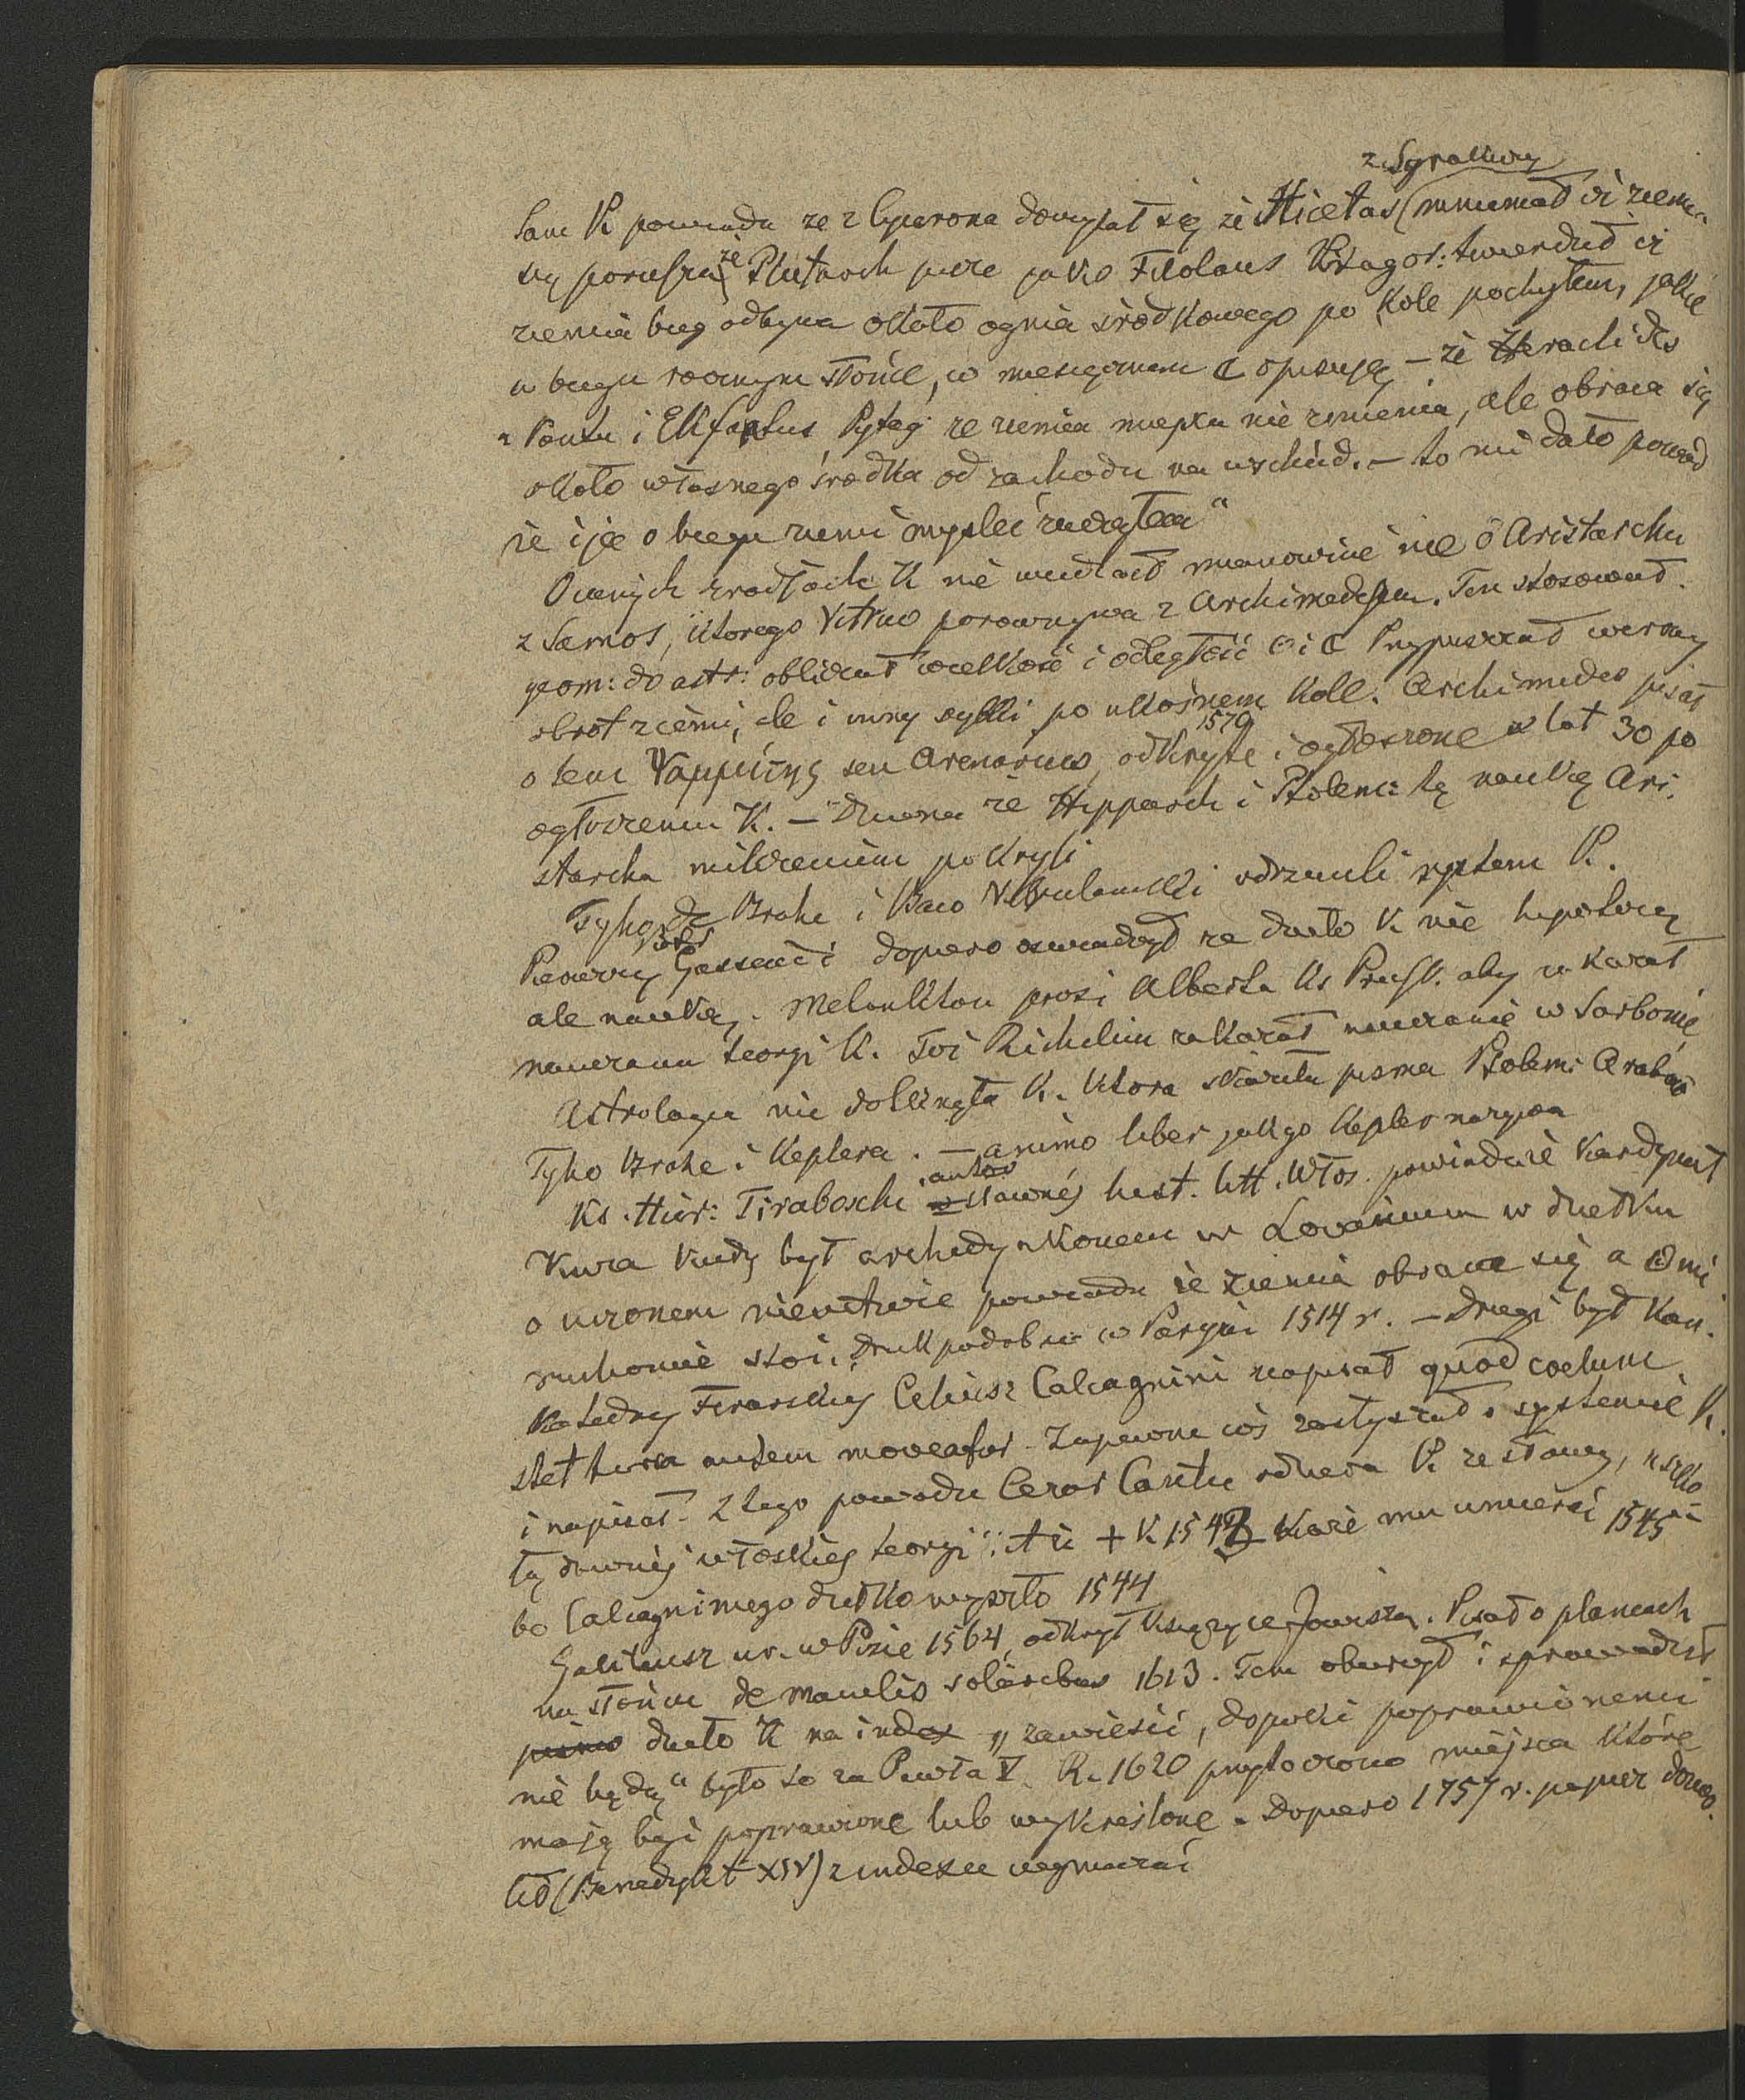 z Syrakuzy
Sam K powiada ze z Cycerona doczytał się że Hicetas (mniemał iż ziemia
się porusza, że Plutarch pisze jako Filolaus Pitagor: twierdził iż
ziemia bieg odbywa około ognia środkowego po kole pochyłem, jakie
w biegu rocznym słońce, w miesięcznem ☾ opisują — że Heraclides
z Pontu i Ekfantus Pytag ze ziemia miejsca nie zmienia, ale obraca się
około własnego środka od zachodu na wschód. — to mi dało powód
że i ja o biegu ziemi myśleć zacząłem"
O innych źródłach K nie wiedział mianowicie nie o Aristarchu
z Samos, którego Vitruv porównywa z Archimedesem. Ten stosował
geom: do astr: obliczał wielkość i odległość ☉ i ☾ Przypuszczał wieczny
obrót ziemi, ale i inny szybki po ukośnem kole. Archimedes pisał
o tem Ψαμμίτης seu Arenarius, odkryte 1570 i ogłoszone w lat 30 po
ogłoszeniu K. — Dziwna że Hipparch i Ptolem: tę naukę Ari-
starcha milczeniem pokryli
Tycho de Brahe i Baco Verulamski odrzucili system K.
Pierwszy Piotr Gassendi dopiero oświadczył ze dzieło K nie hipotezą
ale nauką. Melankton prosi Alberta Ks Prusk. aby zakazał
nauczania teorji K. Toż Richelieu zakazał nauczanie w Sorbonie
Astrologia nie dolęgnęła K. która skaziła pisma Ptolem: Arabów
Tyho Brahe i Keplera. — animo liber jak go Kepler nazywa
Ks. Hier: Tiraboschi autor sławnéj hist. litt. Włos. powiada że Kardynał
Kuza kiedy był archidyakonem w Lovanium w dziełku
o uczonem nieuctwie powiada że ziemia obraca się a ☉ nie
ruchomie stoi. Druk podobno w Paryżu 1514 r. — Drugi był kan.
katedry Ferarskiej Celiusz Calcagnini napisał quod coelum
stet terra autem moveatur. Zapewne coś zasłyszał o systemie K.
i napisał. Z tego powodu Cezar Cantu odziera K ze sławy,
tą dawnéj włoskiej teorji. A iż + K 1543 każe mu umierać 1545
bo Calcagniniego dziełko wyszło 1544
Galileusz ur. w Pizie 1564, odkrył księżyce Jowisza. Pisał o plamach
na słońcu de maculis solaribus 1613. Tem oburzył i sprowadził
pismo dzieło K na index „zawiesić, dopóki poprawionemi
nie będą" było to za Pawła V. R. 1620 przytoczono miejsca które
mają być poprawione lub wykreślone. Dopiero 1757 r. papież dozwo-
lił (Benedykt XIV) z indexu wymazać